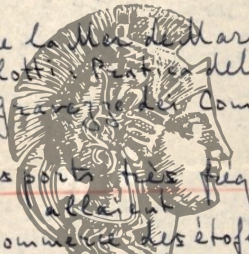 e la Mer de Mar
lotti : Pratica del
gravezze dei Com
sports très fréq
allaient
ommerce des étoff